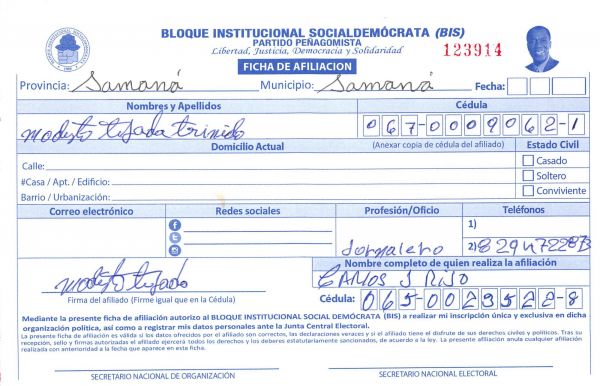 BLOQUE INSTITUCIONAL SOCIALDEMÓCRATA (BIS)
PARTIDO PEÑAGOMISTA
Libertad, Justicia, Democracia y Solidaridad
123914
FICHA DE AFILIACION
Provincia: Samaná Municipio: Samaná Fecha:
Nombres y Apellidos Cédula
modesto tejada trinido 067-0009062-1
Domicilio Actual (Anexar copia de cédula del afiliado) Estado Civil
Calle: Casado
#Casa / Apt. / Edificio: Soltero
Barrio / Urbanización: Conviviente
Correo electrónico Redes sociales Profesión/Oficio Teléfonos
1)
Jornalero 2) 8294722873
Nombre completo de quien realiza la afiliación
modesto tejado CARLOS J RIJO
Firma del afiliado (Firme igual que en la Cédula) Cédula: 065-0029522-8
Mediante la presente ficha de afiliación autorizo al BLOQUE INSTITUCIONAL SOCIAL DEMÓCRATA (BIS) a realizar mi inscripción única y exclusiva en dicha
organización política, así como a registrar mis datos personales ante la Junta Central Electoral.
La presente ficha de afiliación es válida si los datos ofrecidos por el afiliado son correctos, las declaraciones veraces y si el titular tiene el disfrute de sus derechos civiles y políticos. Tras su
recepción, sello y firmas autorizadas el afiliado ejercerá todos los derechos y los deberes estatutariamente sancionados, de acuerdo a la ley. La presente afiliación anula cualquier afiliación
realizada con anterioridad a la fecha que aparece en esta ficha.
SECRETARIO NACIONAL DE ORGANIZACIÓN SECRETARIO NACIONAL ELECTORAL